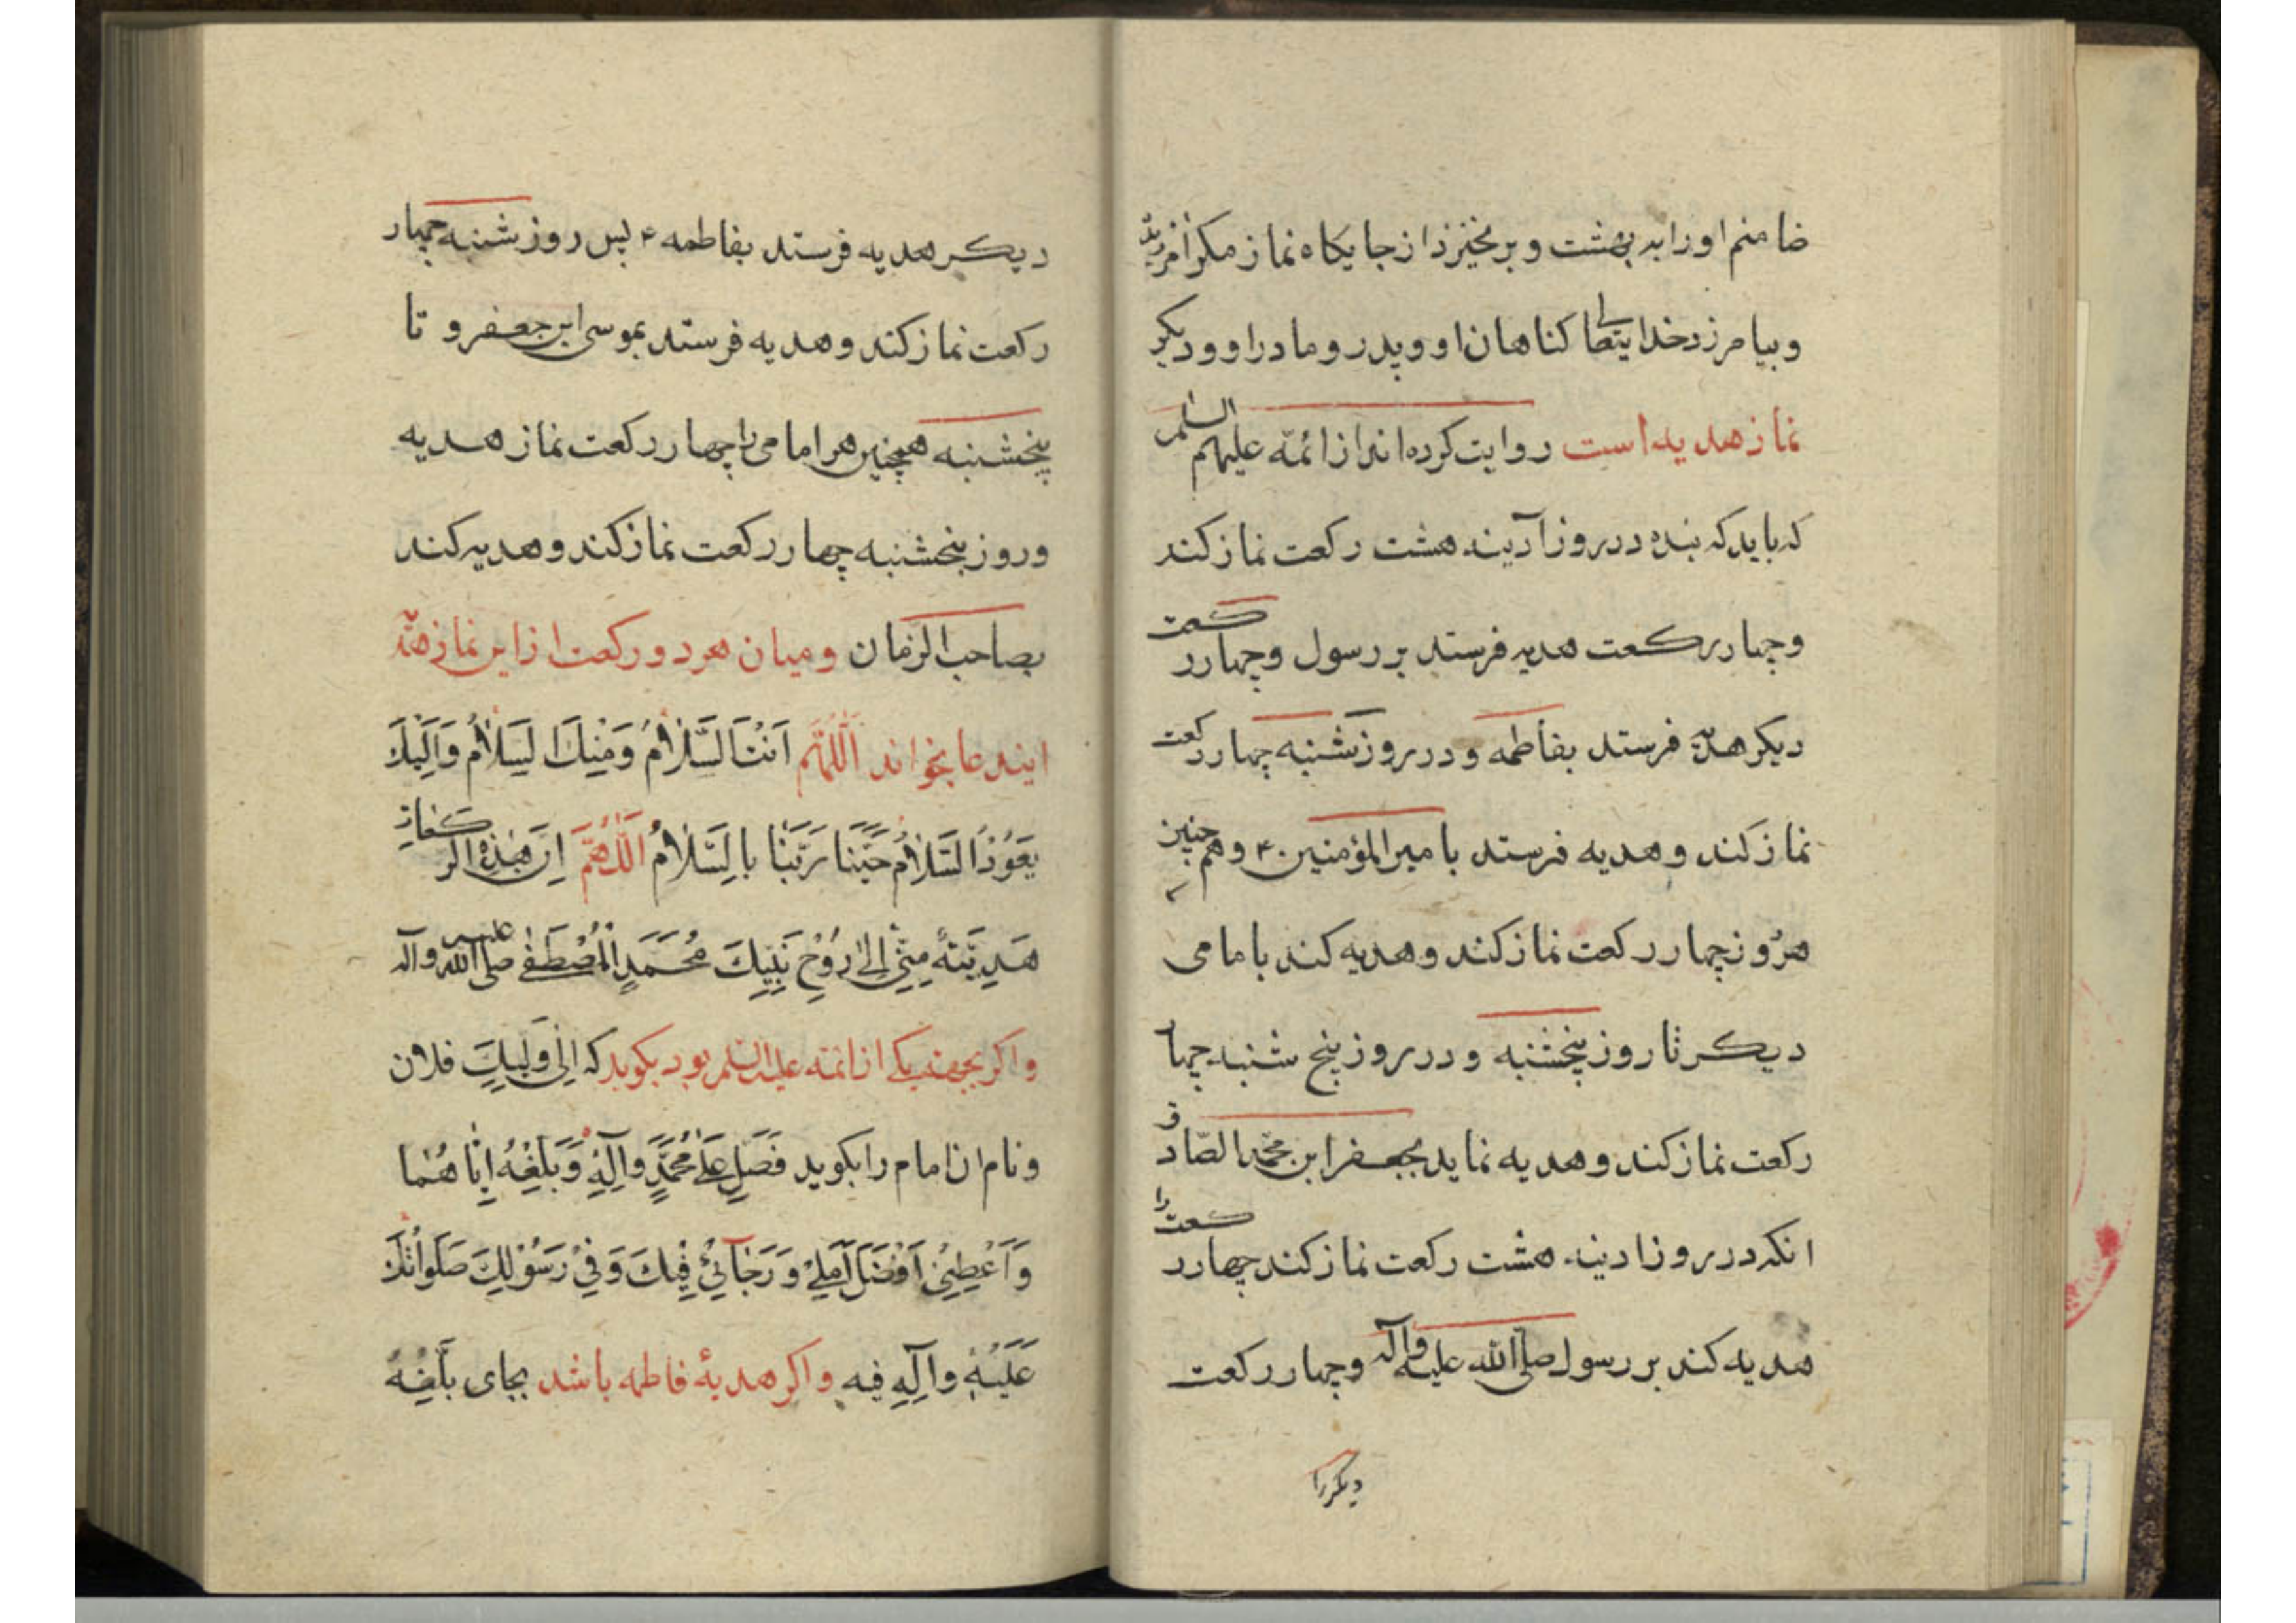 ضامنم او را به بهشت و برنخیزد از جایکاه نماز مکر آمرزیده
و بیامرزد خدایتعالی کناهان او و پدر و مادر او و دیکر
نماز هدیه است روایت کرده اند از ائمّه علیهم السلم
که باید که بنده در روز آدینه هشت رکعت نماز کند
و چهار رکعت هدیه فرستد بر رسول و چهار رکعت
دیکر هدیه فرستد بفاطمه و در روز شنبه چهار رکعت
نماز کند و هدیه فرستد بامیرالمؤمنین ۴ و همچنین
هر روز چهار رکعت نماز کند و هدیه کند بامامی
دیکر تا روز پنجشنبه و در روز پنج شنبه چهار
رکعت نماز کند و هدیه نماید بجعفر ابن محمد الصّادق
انکه در روز ادینه هشت رکعت نماز کند چهار رکعت را
هدیه کند بر رسول صلی الله علیه وآله و چهار رکعت
دیکر را
دیکر هدیه فرستد بفاطمه ۴ پس روز شنبه چهار
رکعت نماز کند و هدیه فرستد بموسی ابن جعفر و تا
پنجشنبه همچنین هر امامی را چهار رکعت نماز هدیه
و روز پنجشنبه چهار رکعت نماز کند و هدیه کند
بصاحب الزمان و میان هر دو رکعت از این نماز هدیه
ایندعا بخواند اَللّهُمَّ اَنْتَ السَّلٰامُ وَمِنْكَ السَّلٰامُ وَاِلَيْكَ
يَعُودُ السَّلٰامُ حَيِّنَا رَبَّنَا بِالسَّلٰامُ اَللّٰهُمَّ اِنَّ هٰذِهِ الرَّكَعَاتِ
هَدِيَّتَةٌ مِنّي اِلىٰ رُوْحِ نَبِيِّكَ مُحَمَّدٍ الْمُصْطَفٰى صلی الله علیه وآله
و اکر بجهت یکی از ائمّه علیه السلم بود بکوید که اِلىٰ وَلِيِّكَ فلان
و نام ان امام را بکوید فَصَلِّ عَلٰى مُحَمَّدٍ وَآلِهِ وَبَلِّغْهُ اِيّٰاهُمٰا
وَاَعْطِنيْ اَفْضَلَ اَمَليْ وَرَجَآئيْ فِيْكَ وَفيْ رَسُوْلِكَ صَلَوٰاتُكَ
عَلَيْهِ وَآلِهِ فيه و اکر هدیهٔ فاطمه باشد بجای بَلِّغْهُ